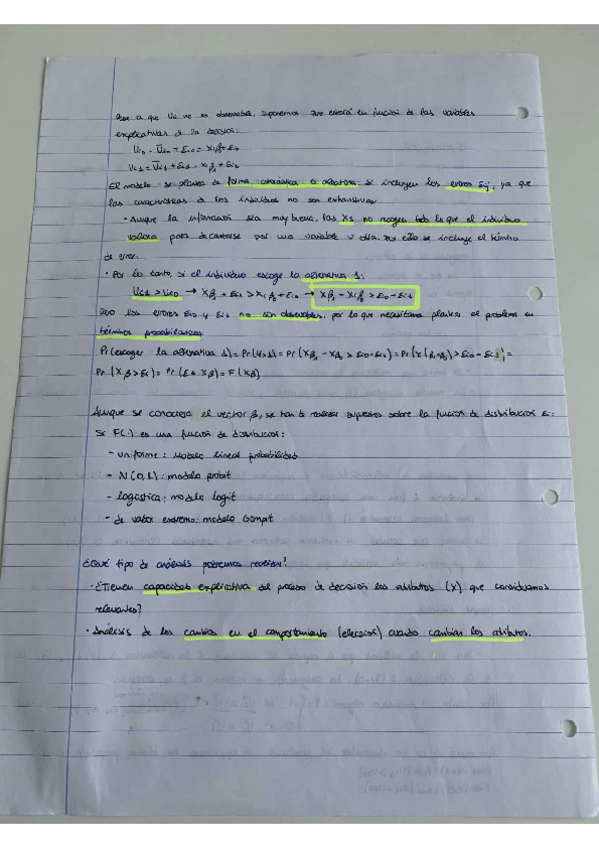 Pese a que Ui no es observable, suponemos que estará en función de las variables
explicativas de la decisión:
Ui0 = Ūi0 + εi0 = Xiβ0 + εi0
Ui1 = Ūi1 + εi1 = Xiβ1 + εi1
El modelo se plantea de forma estocástica o aleatoria: se incluyen los errores εij, ya que
las características de los individuos no son exhaustivas.
- Aunque la información sea muy buena, las Xs no recogen todo lo que el individuo
valora para decantarse por una variable u otra. Por ello se incluye el término
de error.
· Por lo tanto, si el individuo escoge la alternativa 1:
Ui1 > Ui0 → Xiβ1 + εi1 > Xiβ0 + εi0 → Xiβ1 - Xiβ0 > εi0 - εi1
Pero los errores εi0 y εi1 no son observables, por lo que necesitamos plantear el problema en
términos probabilísticos
Pr(escoger la alternativa 1) = Pr(Y=1) = Pr(Xβ1 - Xβ0 > εi0 - εi1) = Pr(X(β1-β0) > εi0 - εi1) =
Pr(Xiβ > εi) = Pr(εi ≤ Xiβ) = F(Xiβ)
Aunque se conociera el vector β, se han de realizar supuestos sobre la función de distribución εi:
Si F(·) es una función de distribución:
- uniforme: modelo lineal probabilidad
- N(0,1): modelo probit
- logística: modelo logit
- de valor extremo: modelo Gompit
¿Qué tipo de análisis podremos realizar?
· ¿Tienen capacidad explicativa del proceso de decisión los atributos (X) que consideramos
relevantes?
· Análisis de los cambios en el comportamiento (elección) cuando cambian los atributos.